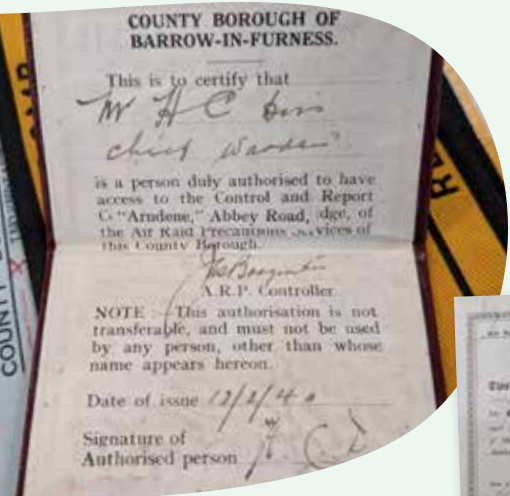 COUNTY BOROUGH OF
BARROW-IN-FURNESS.
This is to certify that
Mr H C
chief Warden
is a person duly authorised to have
access to the Control and Report
C. "Arndene," Abbey Road, dge, of
the Air Raid Precautions vices of
this County Borough.
A.R.P. Controller
NOTE :— This authorisation is not
transferable, and must not be used
by any person, other than whose
name appears hereon.
Date of issue 12/2/40
Signature of
Authorised person
COUNTY